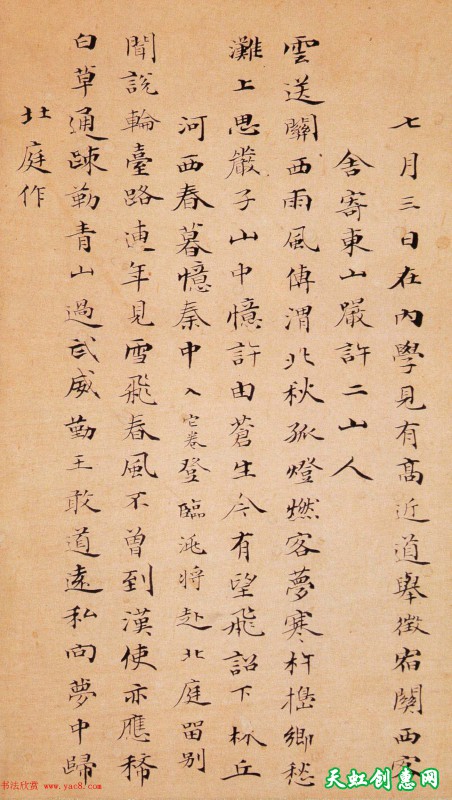 七月三日在內學見有高近道舉徵宿關西客
舍寄東山嚴許二山人
雲送關西雨風傳渭北秋孤燈燃客夢寒杵搗鄉愁
灘上思嚴子山中憶許由蒼生今有望飛詔下林丘
河西春暮憶秦中入它卷登臨洮將赴北庭留別
聞說輪臺路連年見雪飛春風不曾到漢使亦應稀
白草通踈勒青山過武威勤王敢道遠私向夢中歸
北庭作
书法欣赏 www.yac8.com
天虹创惠网